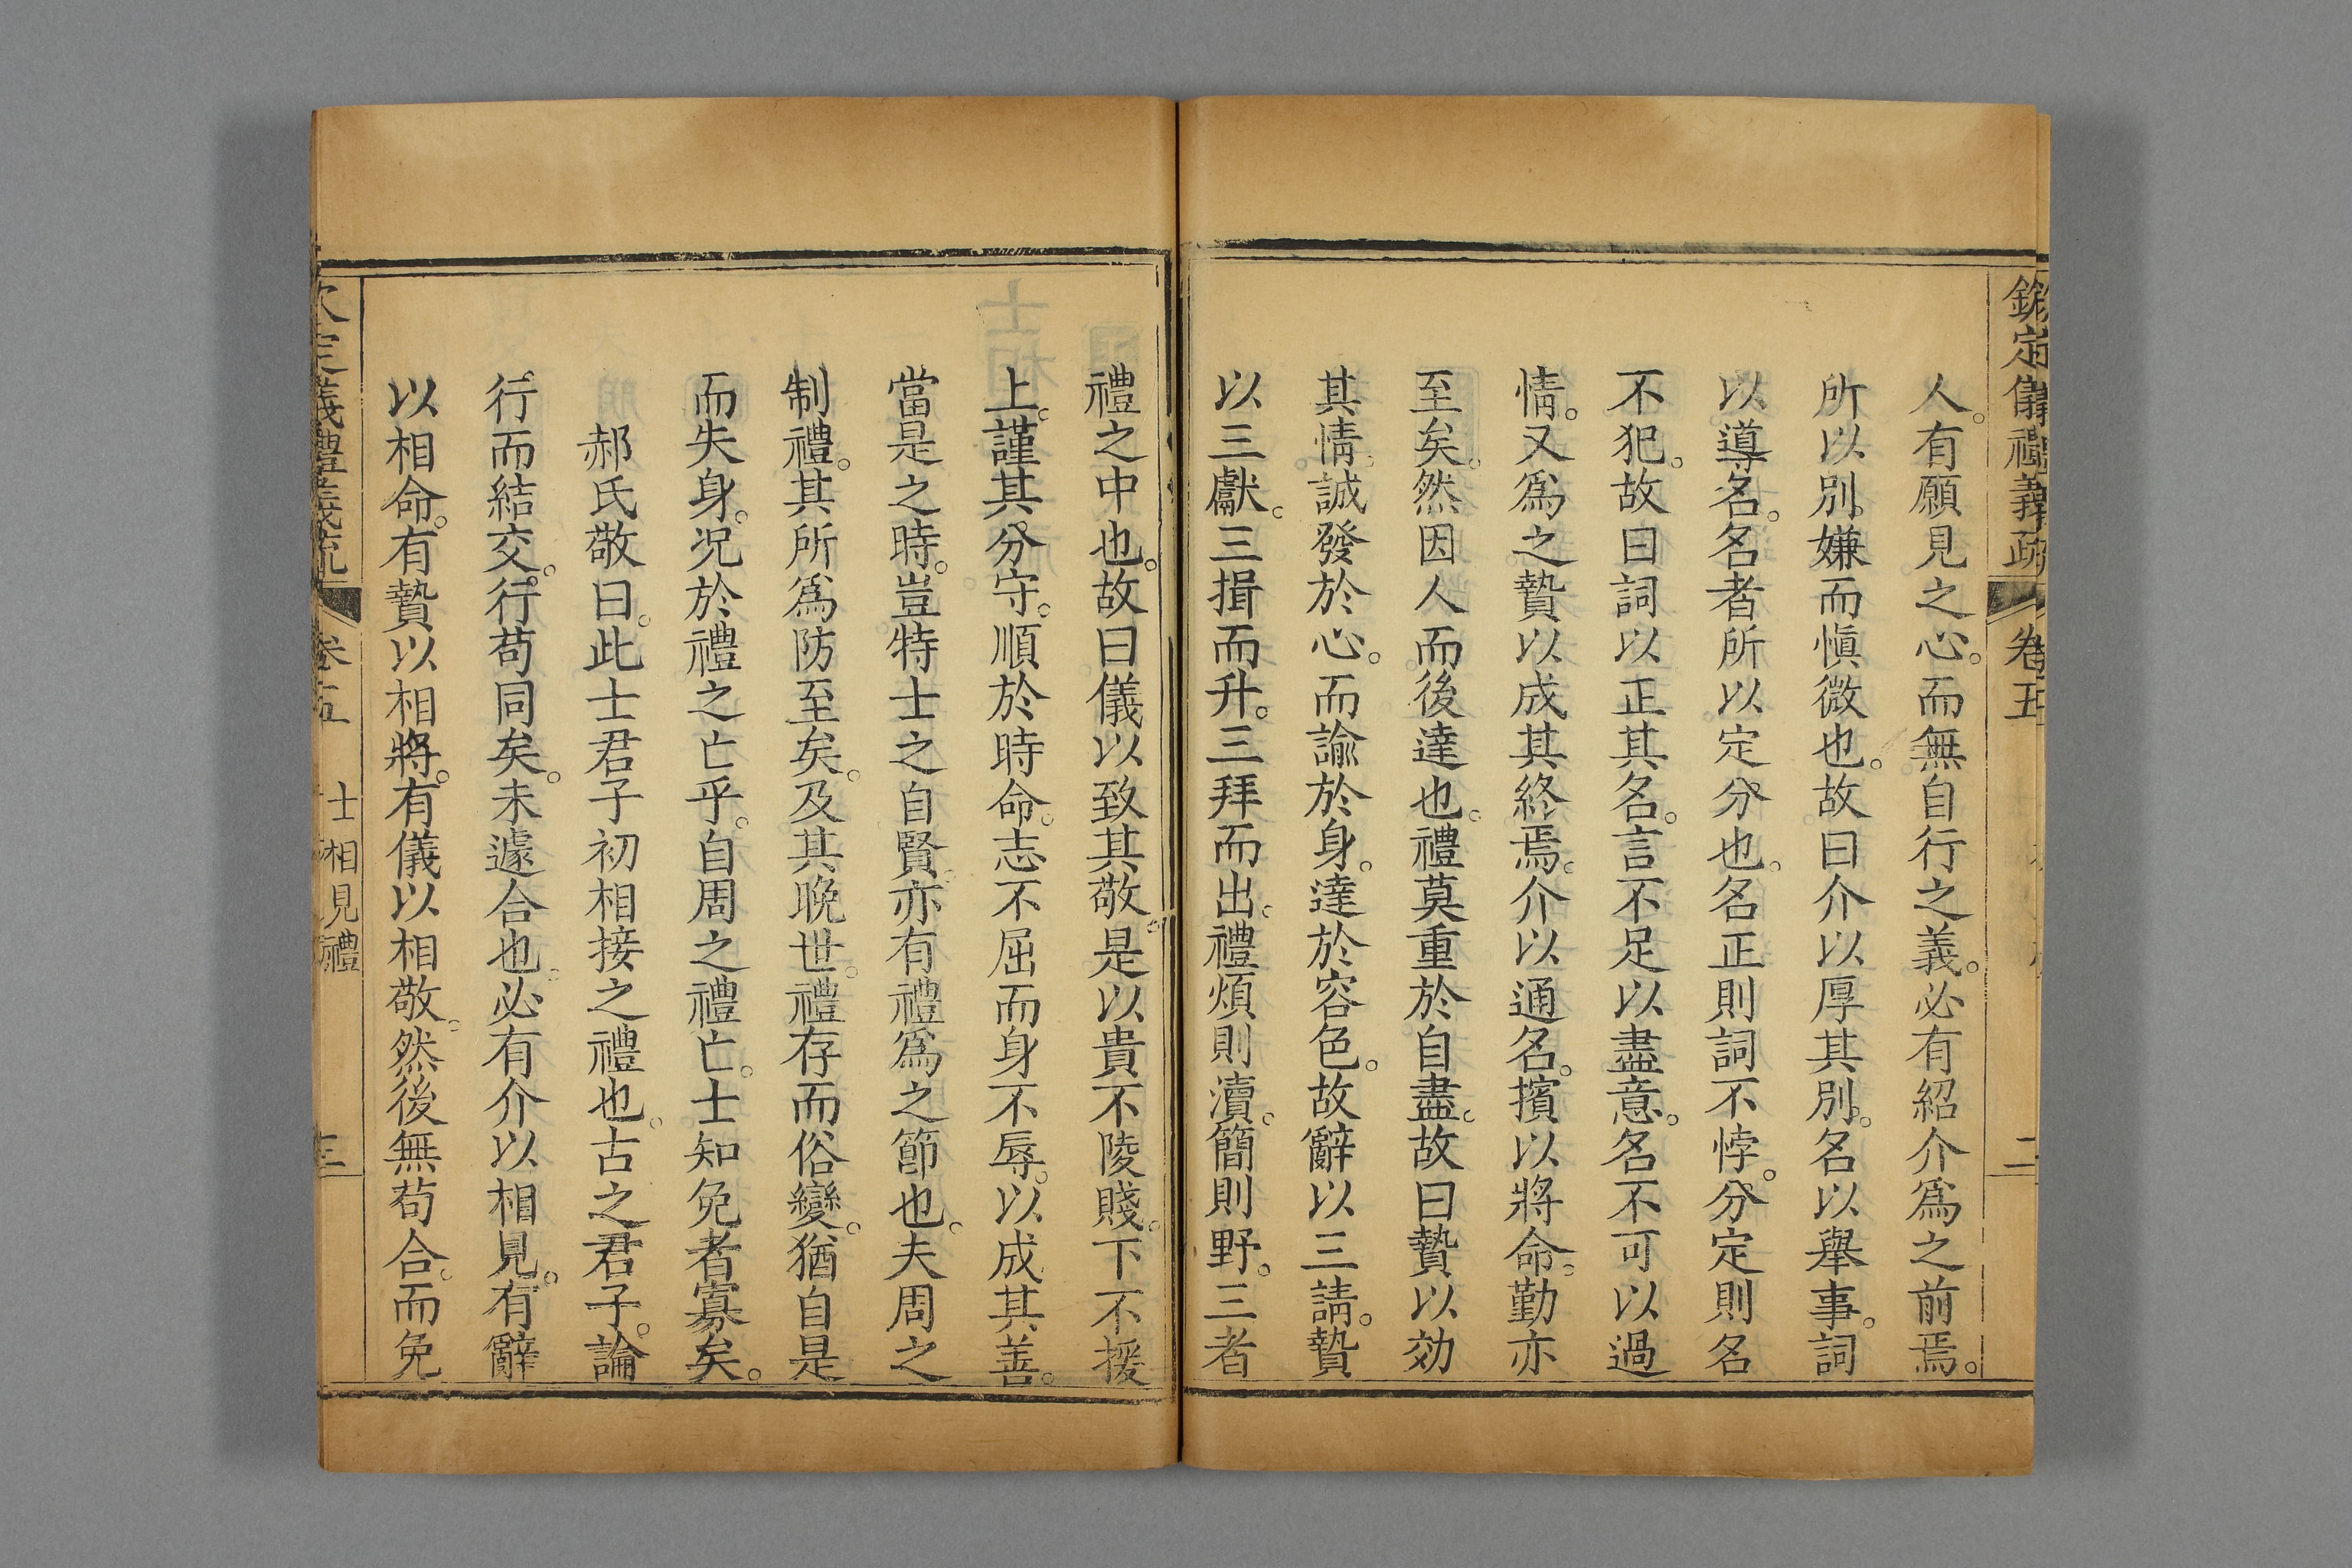 欽定儀禮義疏 卷五 二
人。有願見之心。而無自行之義。必有紹介爲之前焉。
所以別嫌而愼微也。故曰介以厚其別。名以舉事。詞
以導名。名者所以定分也。名正則詞不悖。分定則名
不犯。故曰詞以正其名。言不足以盡意。名不可以過
情。又爲之贄以成其終焉。介以通名。擯以將命。勤亦
至矣。然因人而後達也。禮莫重於自盡。故曰贄以効
其情。誠發於心。而諭於身。達於容色。故辭以三請。贄
以三獻。三揖而升。三拜而出。禮煩則瀆。簡則野。三者
禮之中也。故曰儀以致其敬。是以貴不陵賤。下不援
上。謹其分守。順於時命。志不屈而身不辱。以成其善。
當是之時。豈特士之自賢。亦有禮爲之節也。夫周之
制禮。其所爲防至矣。及其晚世。禮存而俗變。猶自是
而失身。況於禮之亡乎。自周之禮亡。士知免者寡矣。
郝氏敬曰。此士君子初相接之禮也。古之君子。論
行而結交。行苟同矣。未遽合也。必有介以相見。有辭
以相命。有贄以相將。有儀以相敬。然後無苟合。而免
欽定儀禮義疏 卷五 士相見禮 三